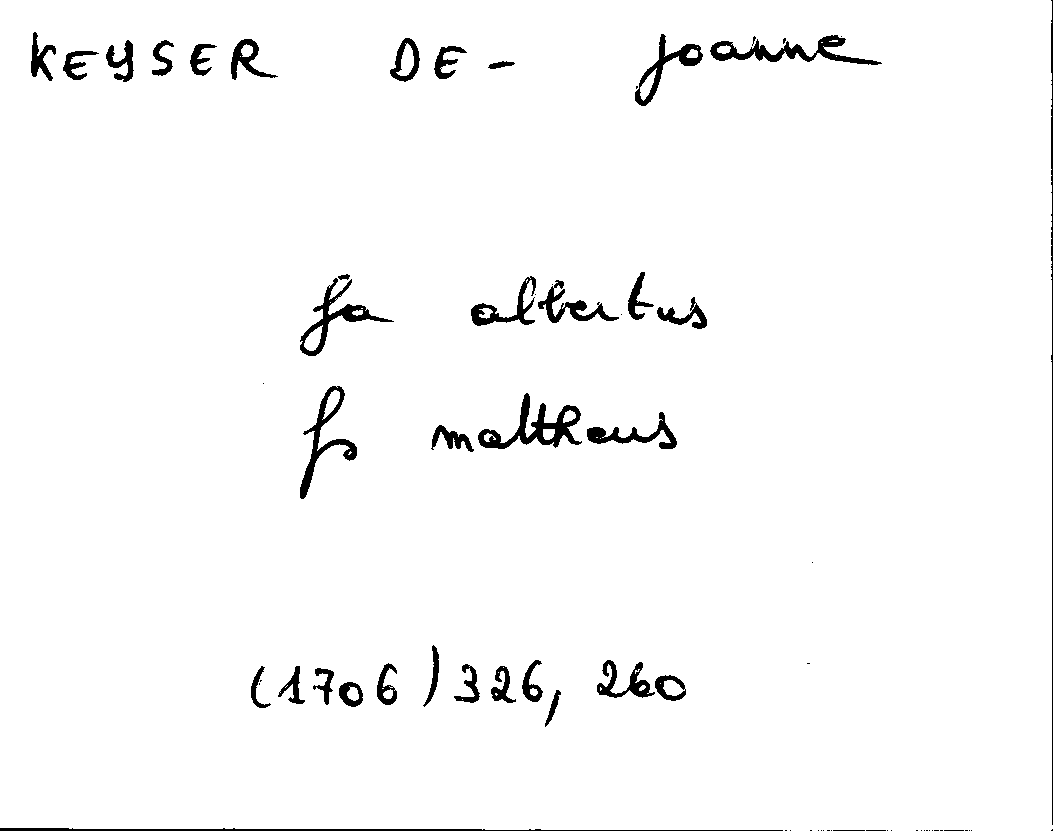 KEYSER DE- Joanne
fa albertus
fs mattheus
(1706) 326, 260